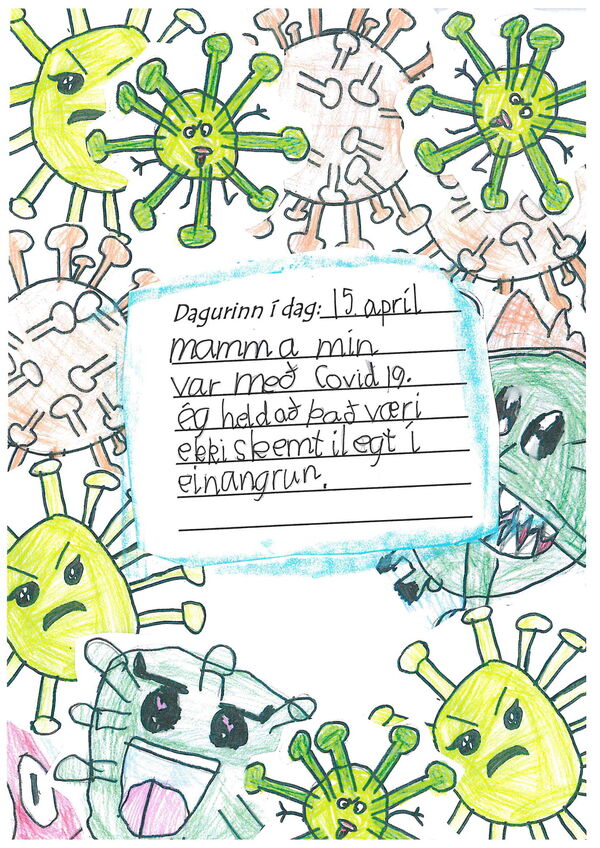 Dagurinn í dag: 15. apríl
mamma mín
var með Covid 19.
ég held að það væri
ekki skemtilegt í
einangrun.